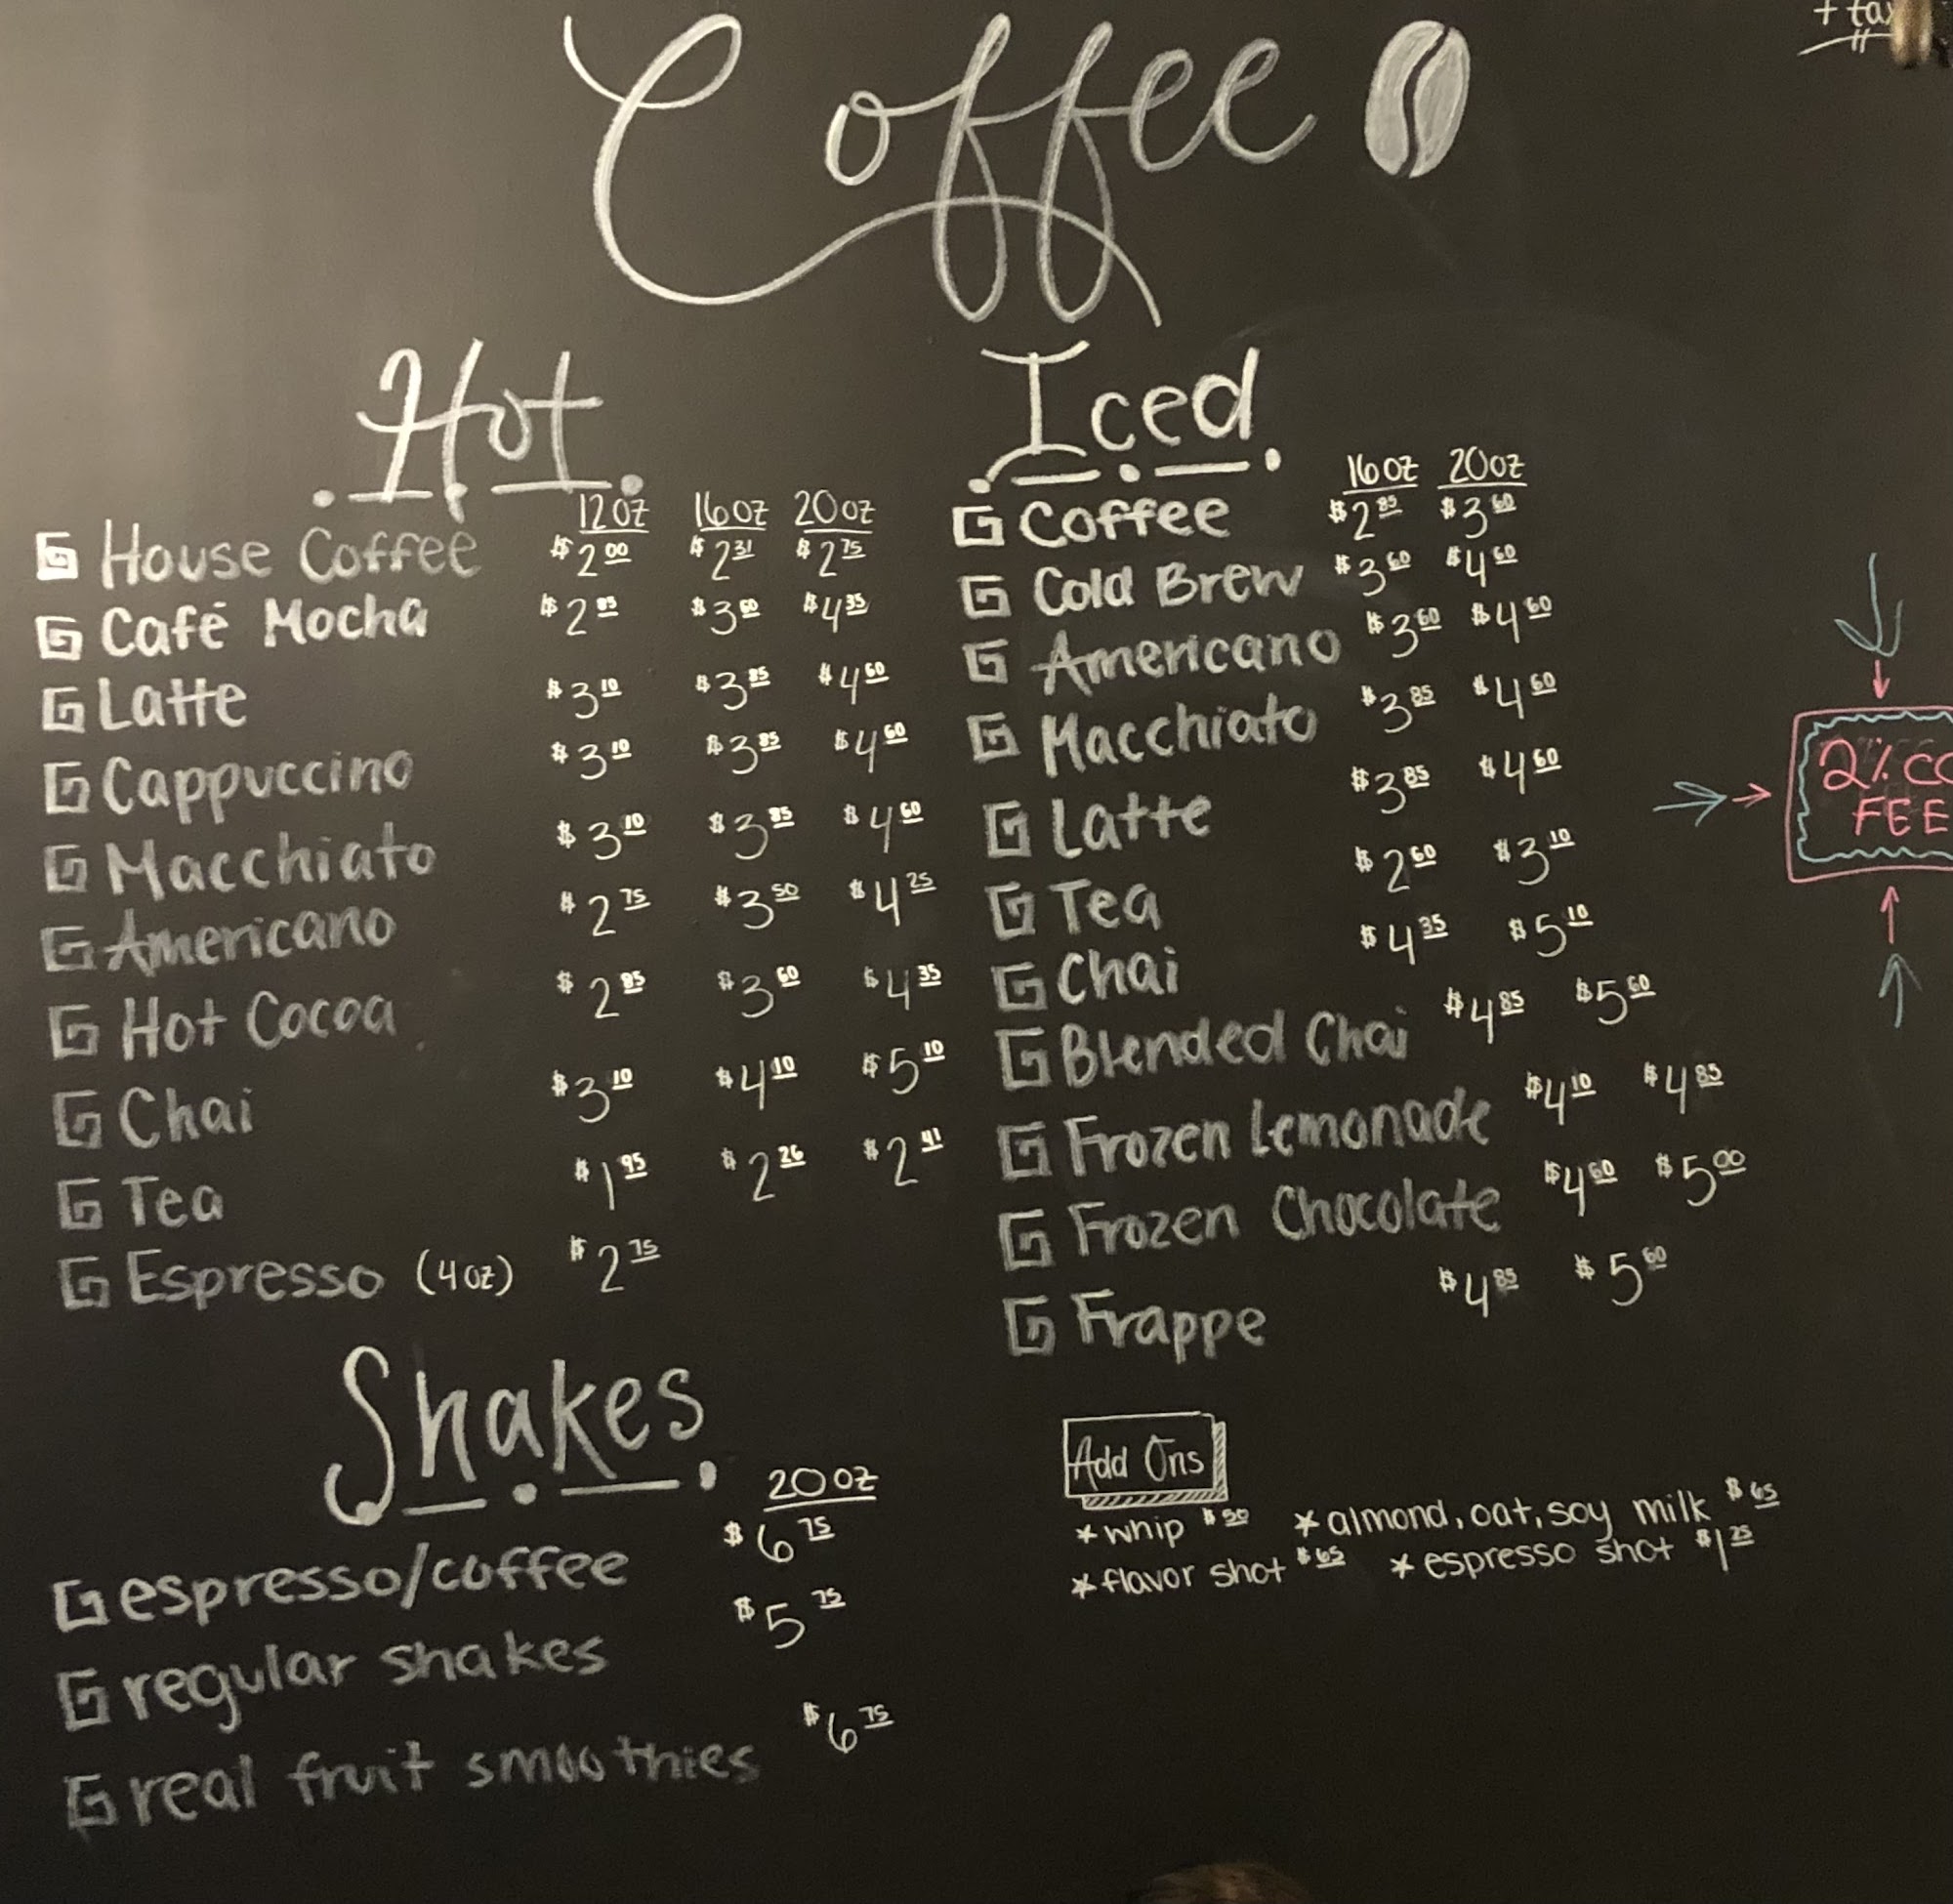 Coffee
+ tax
Hot
12oz 16oz 20oz
House Coffee $2.00 $2.31 $2.75
Café Mocha $2.85 $3.60 $4.35
Latte $3.10 $3.85 $4.60
Cappuccino $3.10 $3.85 $4.60
Macchiato $3.10 $3.85 $4.60
Americano $2.75 $3.50 $4.25
Hot Cocoa $2.85 $3.60 $4.35
Chai $3.10 $4.10 $5.10
Tea $1.95 $2.26 $2.41
Espresso (4oz) $2.75
Iced
16oz 20oz
Coffee $2.85 $3.60
Cold Brew $3.60 $4.60
Americano $3.60 $4.60
Macchiato $3.85 $4.60
Latte $3.85 $4.60
Tea $2.60 $3.10
Chai $4.35 $5.10
Blended Chai $4.85 $5.60
Frozen Lemonade $4.10 $4.85
Frozen Chocolate $4.60 $5.00
Frappe $4.85 $5.60
Shakes
20oz
espresso/coffee $6.75
regular shakes $5.75
real fruit smoothies $6.75
Add Ons
*whip $.50 *almond, oat, soy milk $.65
*flavor shot $.65 *espresso shot $1.25
2%
FEE